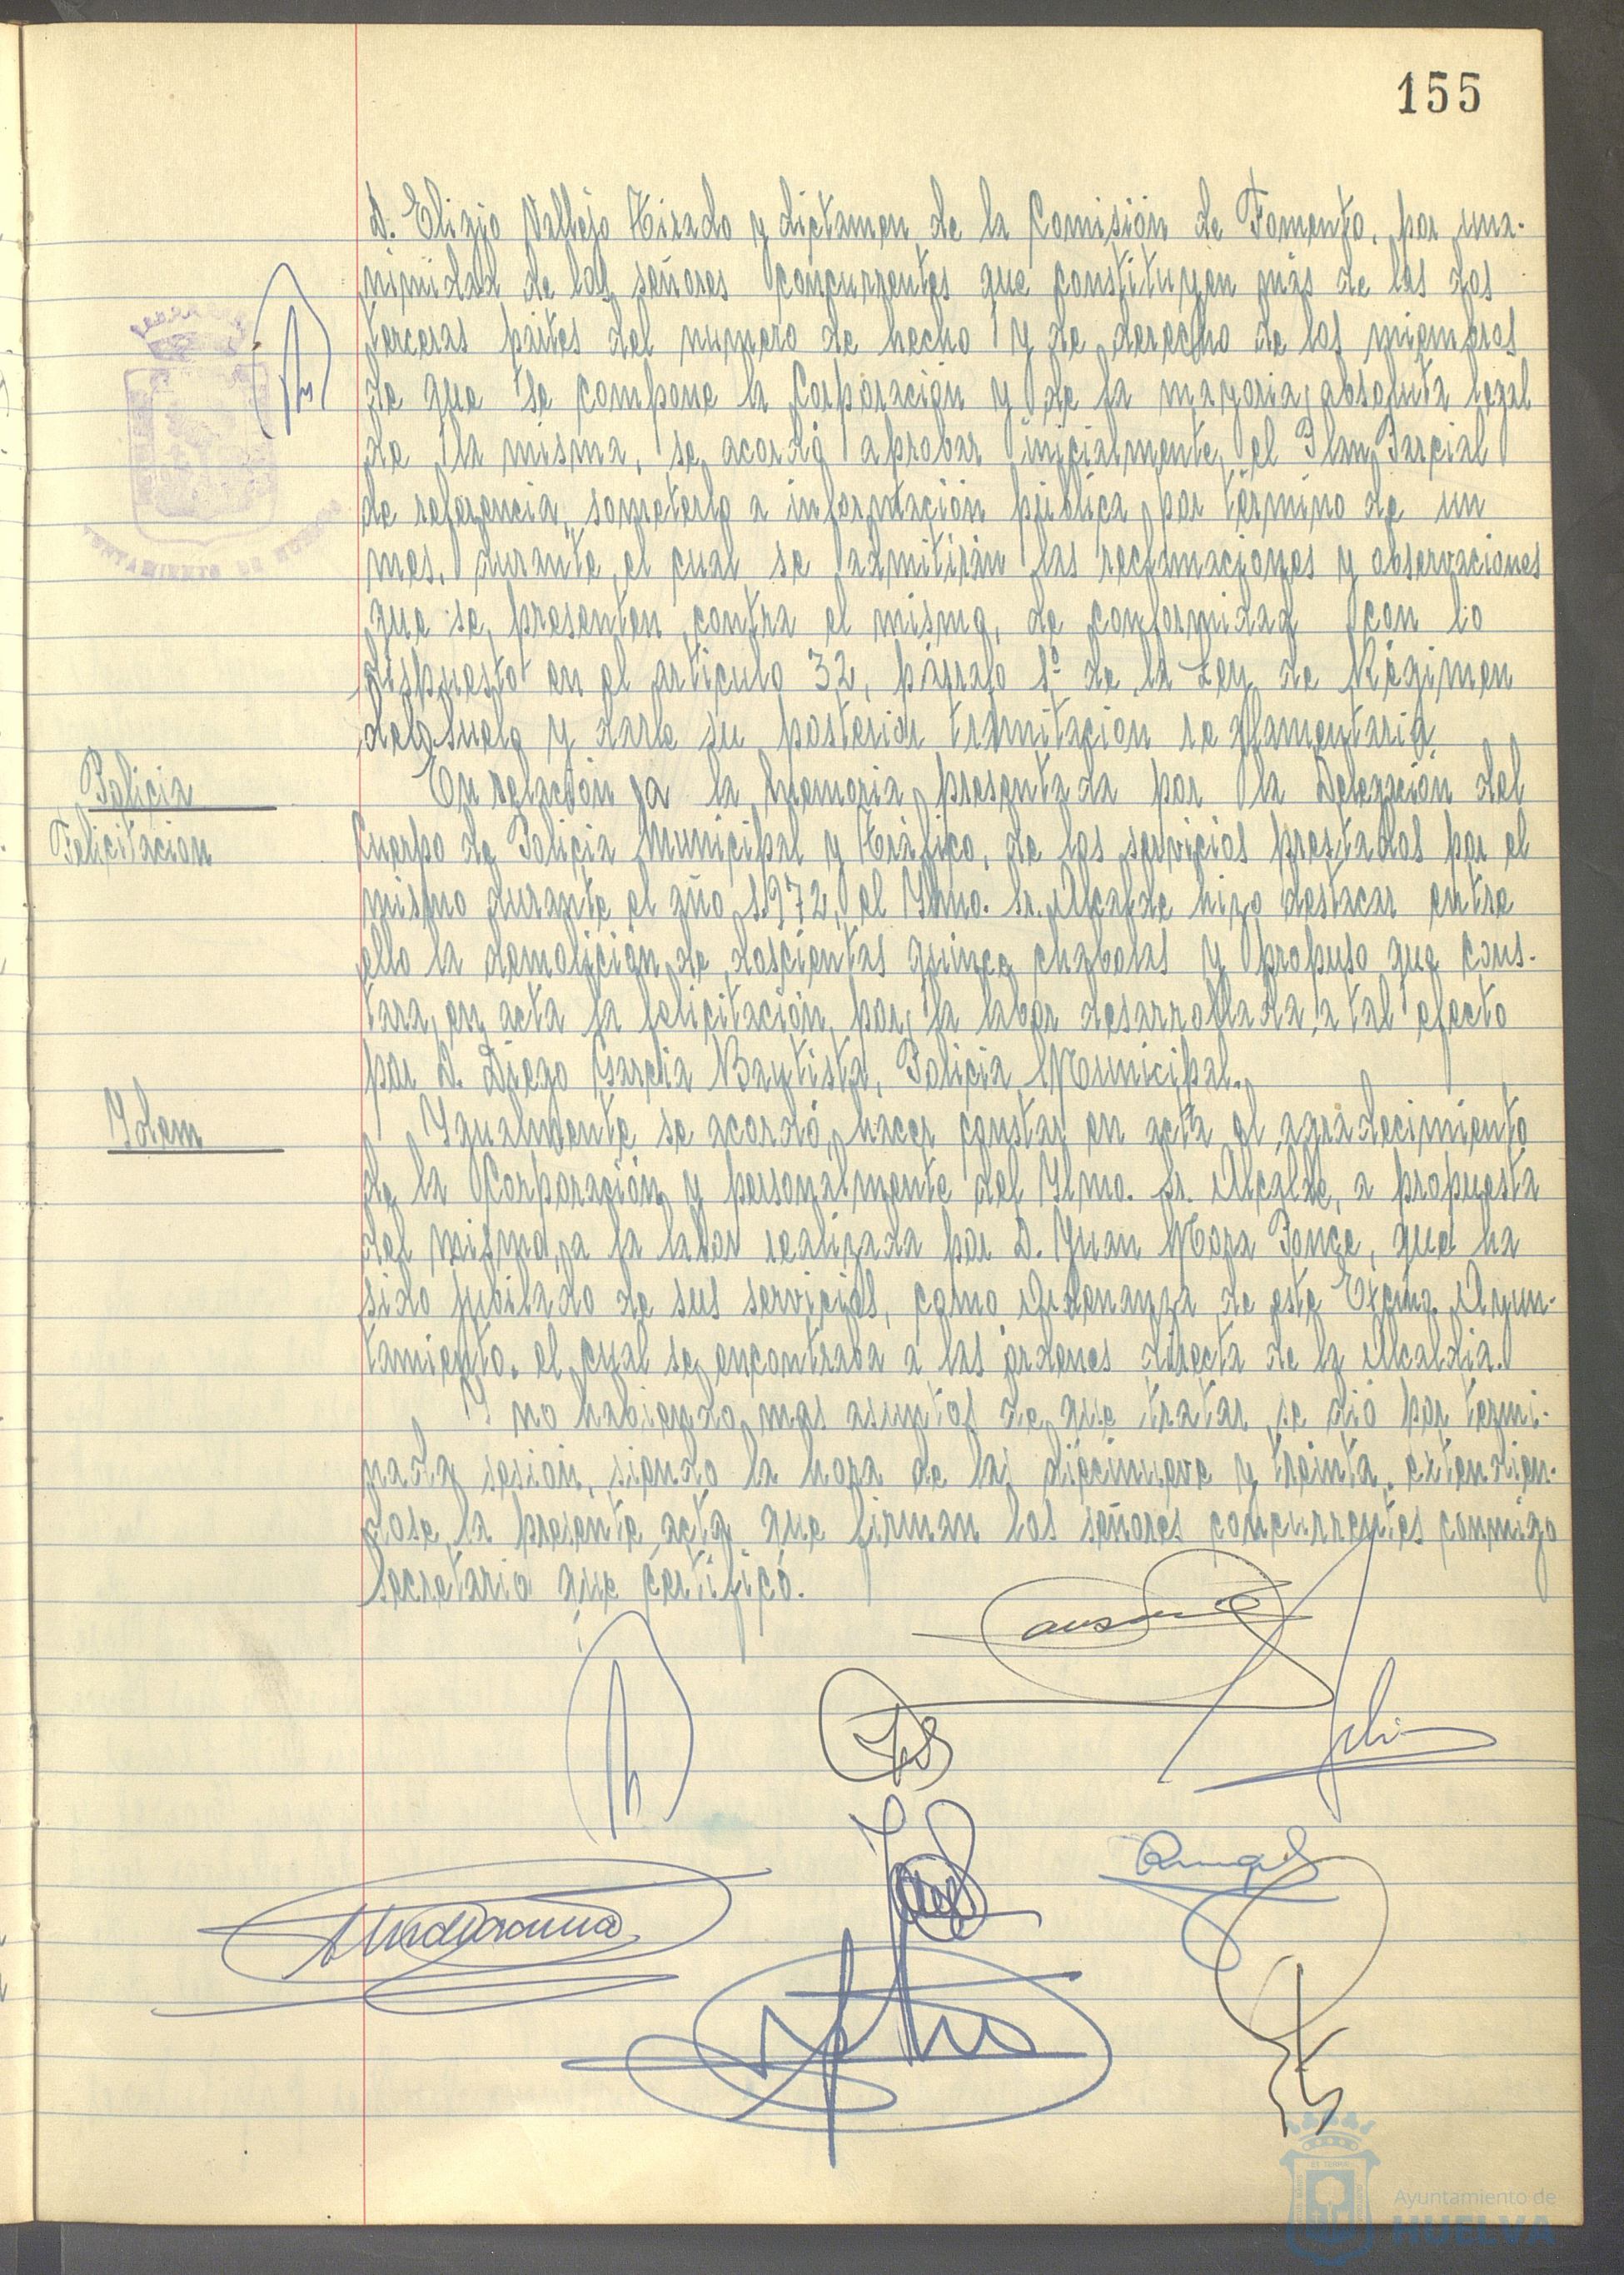 155
D. Eligio Vallejo Hirado y dictamen de la Comisión de Fomento, por una-
nimidad de los señores concurrentes que constituyen más de las dos
terceras partes del numero de hecho y de derecho de los miembros
de que se compone la Corporación y de la mayoria absoluta legal
de la misma, se acordó aprobar inicialmente, el Plan Parcial
de referencia, someterlo a información pública por término de un
mes, durante el cual se admitirán las reclamaciones y observaciones
que se presenten contra el mismo, de conformidad con lo
dispuesto en el articulo 32, párrafo 1º de la Ley de Régimen
del Suelo y darle su posterior tramitación reglamentaria.
Policia
Felicitacion
En relación a la Memoria presentada por la Delegación del
Cuerpo de Policia Municipal y Tráfico, de los servicios prestados por el
mismo durante el año 1.972, el Ylmo. Sr. Alcalde hizo destacar entre
ello la demolición de doscientas quince chabolas y propuso que cons-
tara en acta la felicitación por la labor desarrollada a tal efecto
por D. Diego Garcia Bautista, Policia Municipal.
Ydem
Ygualmente se acordó hacer constar en acta el agradecimiento
de la Corporación y personalmente del Ylmo. Sr. Alcalde, a propuesta
del mismo, a la labor realizada por D. Juan Mora Ponce, que ha
sido jubilado de sus servicios, como Ordenanza de este Excmo. Ayun-
tamiento, el cual se encontraba a las órdenes directa de la Alcaldia.
Y no habiendo mas asuntos de que tratar se dió por termi-
nada sesión, siendo la hora de las diecinueve y treinta, extendien-
dose la presente acta que firman los señores concurrentes conmigo
Secretario que certifico.
AYUNTAMIENTO DE
Ayuntamiento de
HUELVA